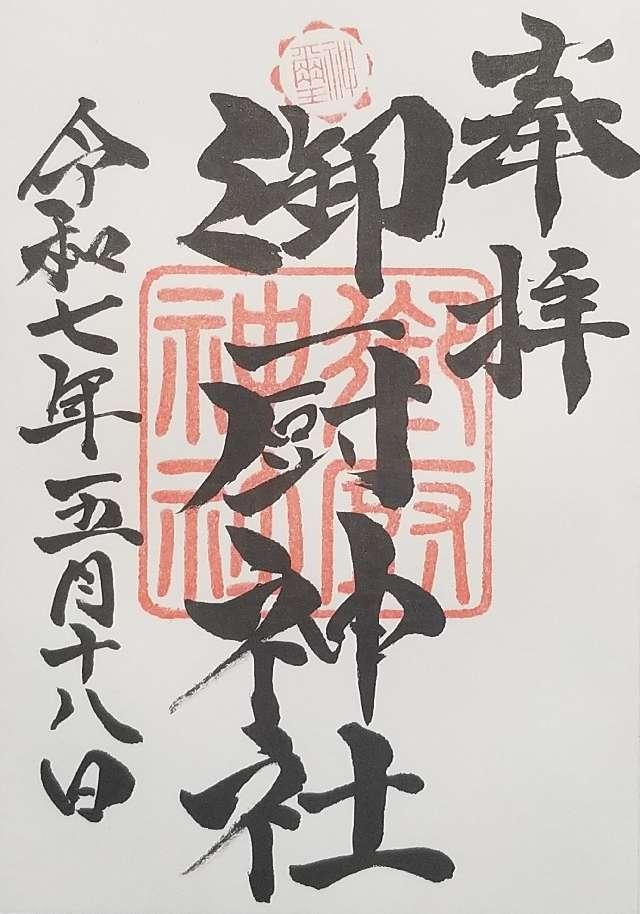 奉拝
御厨神社
令和七年五月十八日
神璽
御厨神社